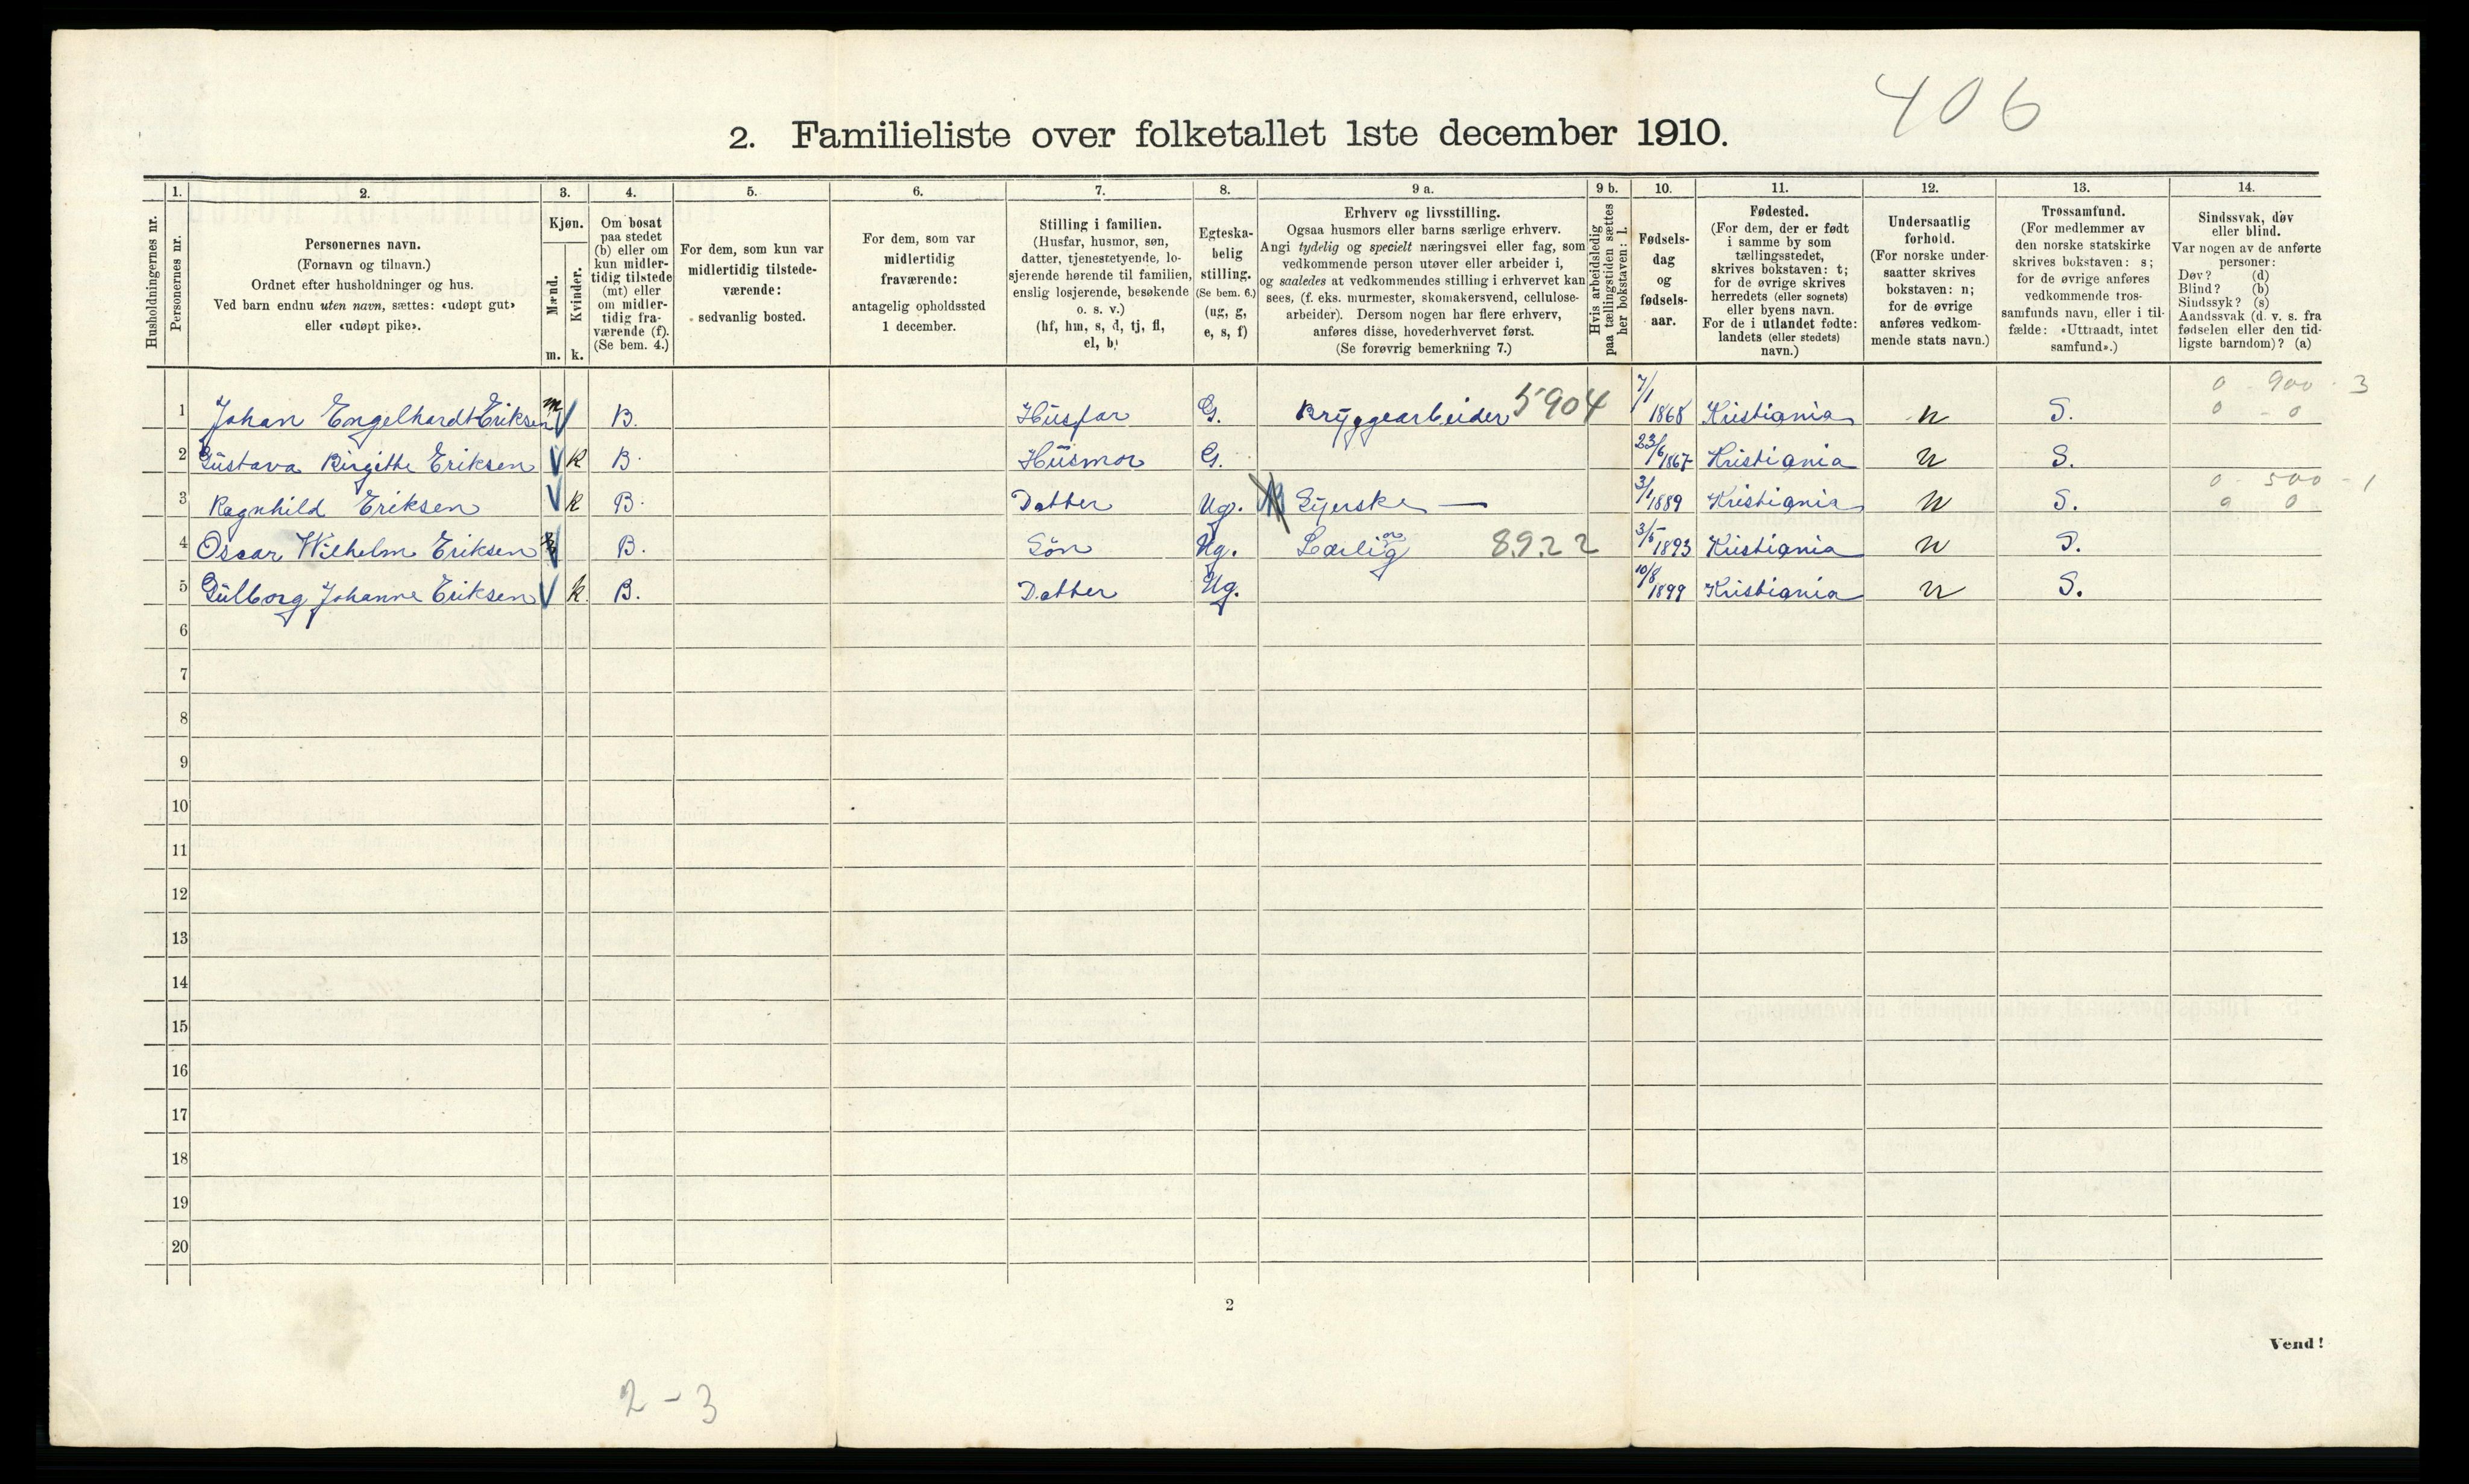 406
2. Familieliste over folketallet 1ste december 1910.
1. 2. 3. 4. 5. 6. 7. 8. 9 a. 9 b. 10. 11. 12. 13. 14.
Husholdningernes nr.
Personernes nr.
Personernes navn.
(Fornavn og tilnavn.)
Ordnet efter husholdninger og hus.
Ved barn endnu uten navn, sættes: «udøpt gut»
eller «udøpt pike».
Kjøn.
Mænd.
Kvinder.
m. k.
Om bosat
paa stedet
(b) eller om
kun midler-
tidig tilstede
(mt) eller
om midler-
tidig fra-
værende (f).
(Se bem. 4.)
For dem, som kun var
midlertidig tilstede-
værende:
sedvanlig bosted.
For dem, som var
midlertidig
fraværende:
antagelig opholdssted
1 december.
Stilling i familien.
(Husfar, husmor, søn,
datter, tjenestetyende, lo-
sjerende hørende til familien,
enslig losjerende, besøkende
o. s. v.)
(hf, hm, s, d, tj, fl,
el, b)
Egteska-
belig
stilling.
(Se bem. 6.)
(ug, g,
e, s, f)
Erhverv og livsstilling.
Ogsaa husmors eller barns særlige erhverv.
Angi tydelig og specielt næringsvei eller fag, som
vedkommende person utøver eller arbeider i,
og saaledes at vedkommendes stilling i erhvervet kan
sees, (f. eks. murmester, skomakersvend, cellulose-
arbeider). Dersom nogen har flere erhverv,
anføres disse, hovederhvervet først.
(Se forøvrig bemerkning 7.)
Hvis arbeidsledig
paa tællingstiden sættes
her bokstaven: l.
Fødsels-
dag
og
fødsels-
aar.
Fødested.
(For dem, der er født
i samme by som
tællingsstedet,
skrives bokstaven: t;
for de øvrige skrives
herredets (eller sognets)
eller byens navn.
For de i utlandet fødte:
landets (eller stedets)
navn.)
Undersaatlig
forhold.
(For norske under-
saatter skrives
bokstaven: n;
for de øvrige
anføres vedkom-
mende stats navn.)
Trossamfund.
(For medlemmer av
den norske statskirke
skrives bokstaven: s;
for de øvrige anføres
vedkommende tros-
samfunds navn, eller i til-
fælde: «Uttraadt, intet
samfund».)
Sindssvak, døv
eller blind.
Var nogen av de anførte
personer:
Døv? (d)
Blind? (b)
Sindssyk? (s)
Aandssvak (d. v. s. fra
fødselen eller den tid-
ligste barndom)? (a)
0 - 900 - 3
1 Johan Engelhardt Eriksen m B. Husfar G. Bryggearbeider 5904 7/1 1868 Kristiania n S. 0 - 0
2 Gustava Birgitte Eriksen k B. Husmor G. 23/6 1867 Kristiania n S.
0 - 500 - 1
3 Ragnhild Eriksen k B. Datter Ug. Syerske — 3/1 1889 Kristiania n S. 0 0
4 Oscar Wilhelm Eriksen B. Søn Ug. Lærling 8922 3/5 1893 Kristiania n S.
5 Gulborg Johanne Eriksen k B. Datter Ug. 10/8 1899 Kristiania n S.
6
7
8
9
10
11
12
13
14
15
16
17
18
19
20
2
Vend!
2 - 3